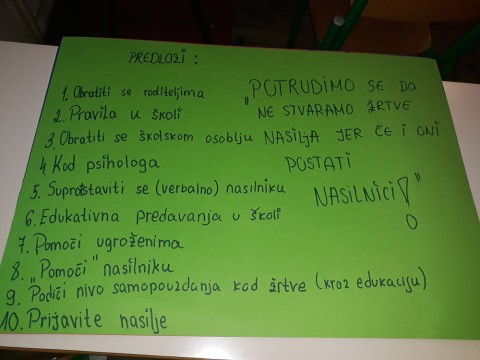 PREDLOZI :
1. Obratiti se roditeljima
2. Pravila u školi
3. Obratiti se školskom osoblju
4. Kod psihologa
5. Suprotstaviti se (verbalno) nasilniku
6. Edukativna predavanja u školi
7. Pomoći ugroženima
8. "Pomoći" nasilniku
9. Podići nivo samopouzdanja kod žrtve (kroz edukaciju)
10. Prijavite nasilje
"POTRUDIMO SE DA
NE STVARAMO ŽRTVE
NASILJA JER ĆE I ONI
POSTATI
NASILNICI!"